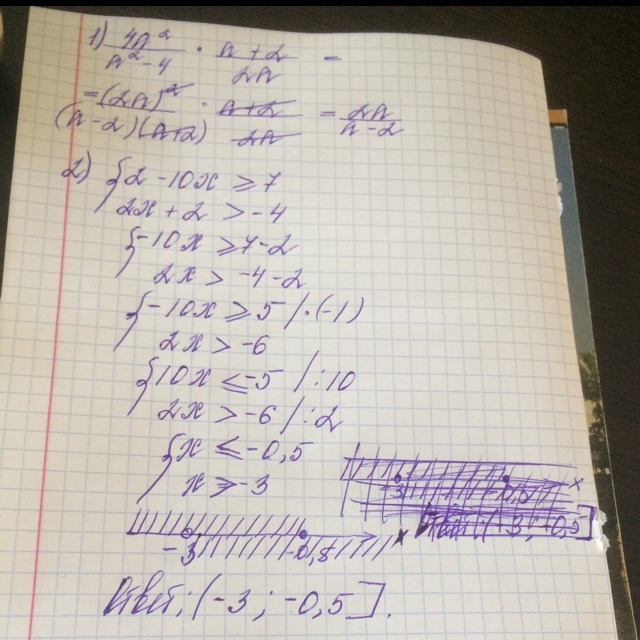 1) 4a²/a²-4 · a+2/2a =
= (2a)²/(a-2)(a+2) · a+2/2a = 2a/a-2
2) { 2 - 10x ≥ 7
2x + 2 > -4
{ -10x ≥ 7-2
2x > -4-2
{ -10x ≥ 5 /·(-1)
2x > -6
{ 10x ≤ -5 /:10
2x > -6 /:2
{ x ≤ -0,5
x > -3
-3 -0,5 x
-3 -0,5 x
Ответ: (-3; -0,5]
Ответ: (-3; -0,5].